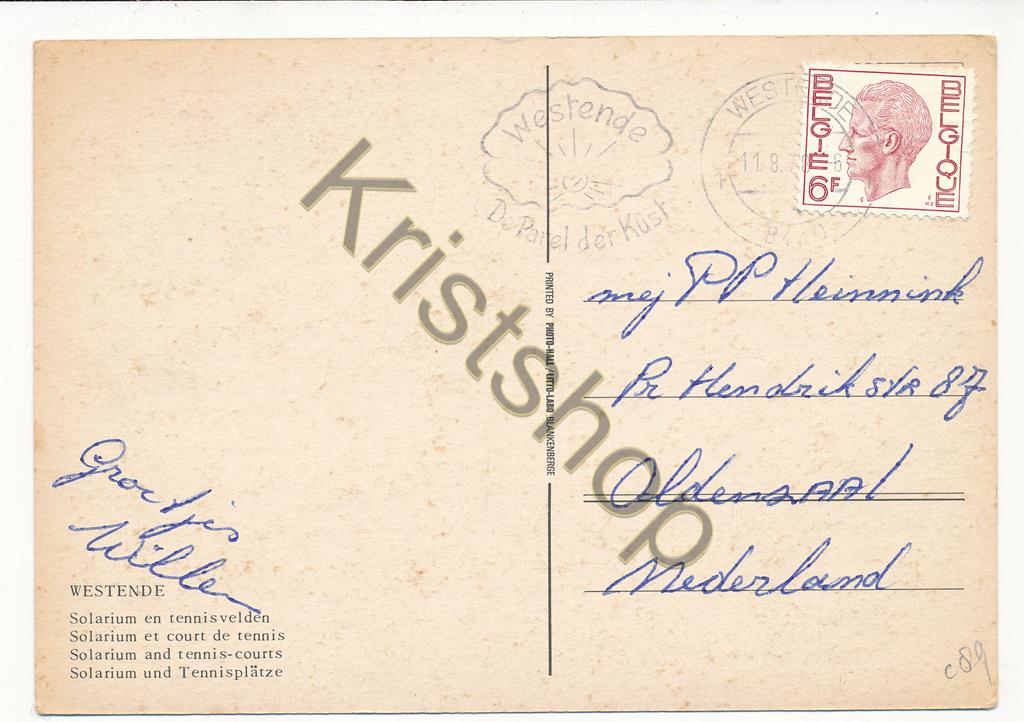 Westende
De Parel der Kust
WESTENDE
11.8.
BELGIE
BELGIQUE
6F
mej PP Heinnink
Pr Hendrik STR 87
Oldenzaal
Nederland
PRINTED BY PHOTO-HALL/LITTO-LABO BLANKENBERGE
Groetjes
Willem
WESTENDE
Solarium en tennisvelden
Solarium et court de tennis
Solarium and tennis-courts
Solarium und Tennisplätze
c89
Kristshop